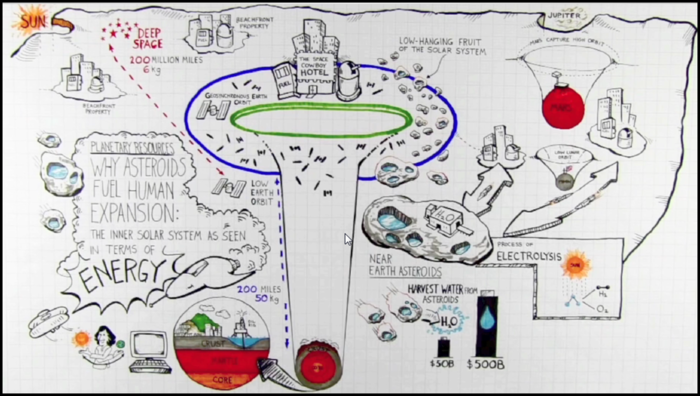 SUN
DEEP
SPACE
200 MILLION MILES
6 Kg
BEACHFRONT
PROPERTY
BEACHFRONT
PROPERTY
THE SPACE
COWBOY
HOTEL
FUEL
LOW-HANGING FRUIT
OF THE SOLAR SYSTEM
JUPITER
MARS CAPTURE HIGH ORBIT
MARS
GEOSYNCHRONOUS EARTH
ORBIT
LOW
EARTH
ORBIT
LOW LUNAR
ORBIT
PLANETARY RESOURCES
WHY ASTEROIDS
FUEL HUMAN
EXPANSION:
THE INNER SOLAR SYSTEM AS SEEN
IN TERMS OF
ENERGY
200 MILES
50 Kg
CRUST
CORE
H₂O
NEAR
EARTH ASTEROIDS
HARVEST WATER FROM
ASTEROIDS
H₂O
$50B
$500B
PROCESS OF
ELECTROLYSIS
SUN
H₂
O₂